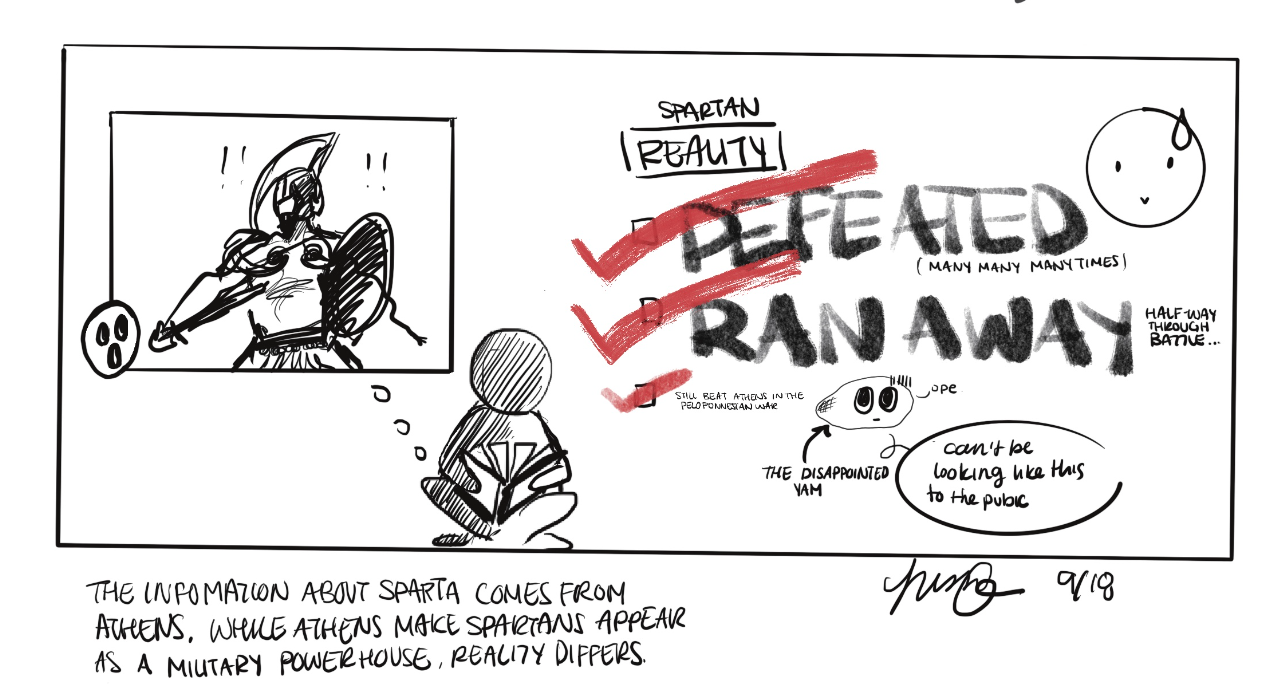 SPARTAN
REALITY
DEFEATED
(MANY MANY MANY TIMES)
RAN AWAY
HALF-WAY
THROUGH
BATTLE...
STILL BEAT ATHENS IN THE
PELOPONNESIAN WAR
ope
THE DISAPPOINTED
YAM
can't be
looking like this
to the pubic
9/18
THE INFOMATION ABOUT SPARTA COMES FROM
ATHENS. WHILE ATHENS MAKE SPARTANS APPEAR
AS A MILITARY POWERHOUSE, REALITY DIFFERS.